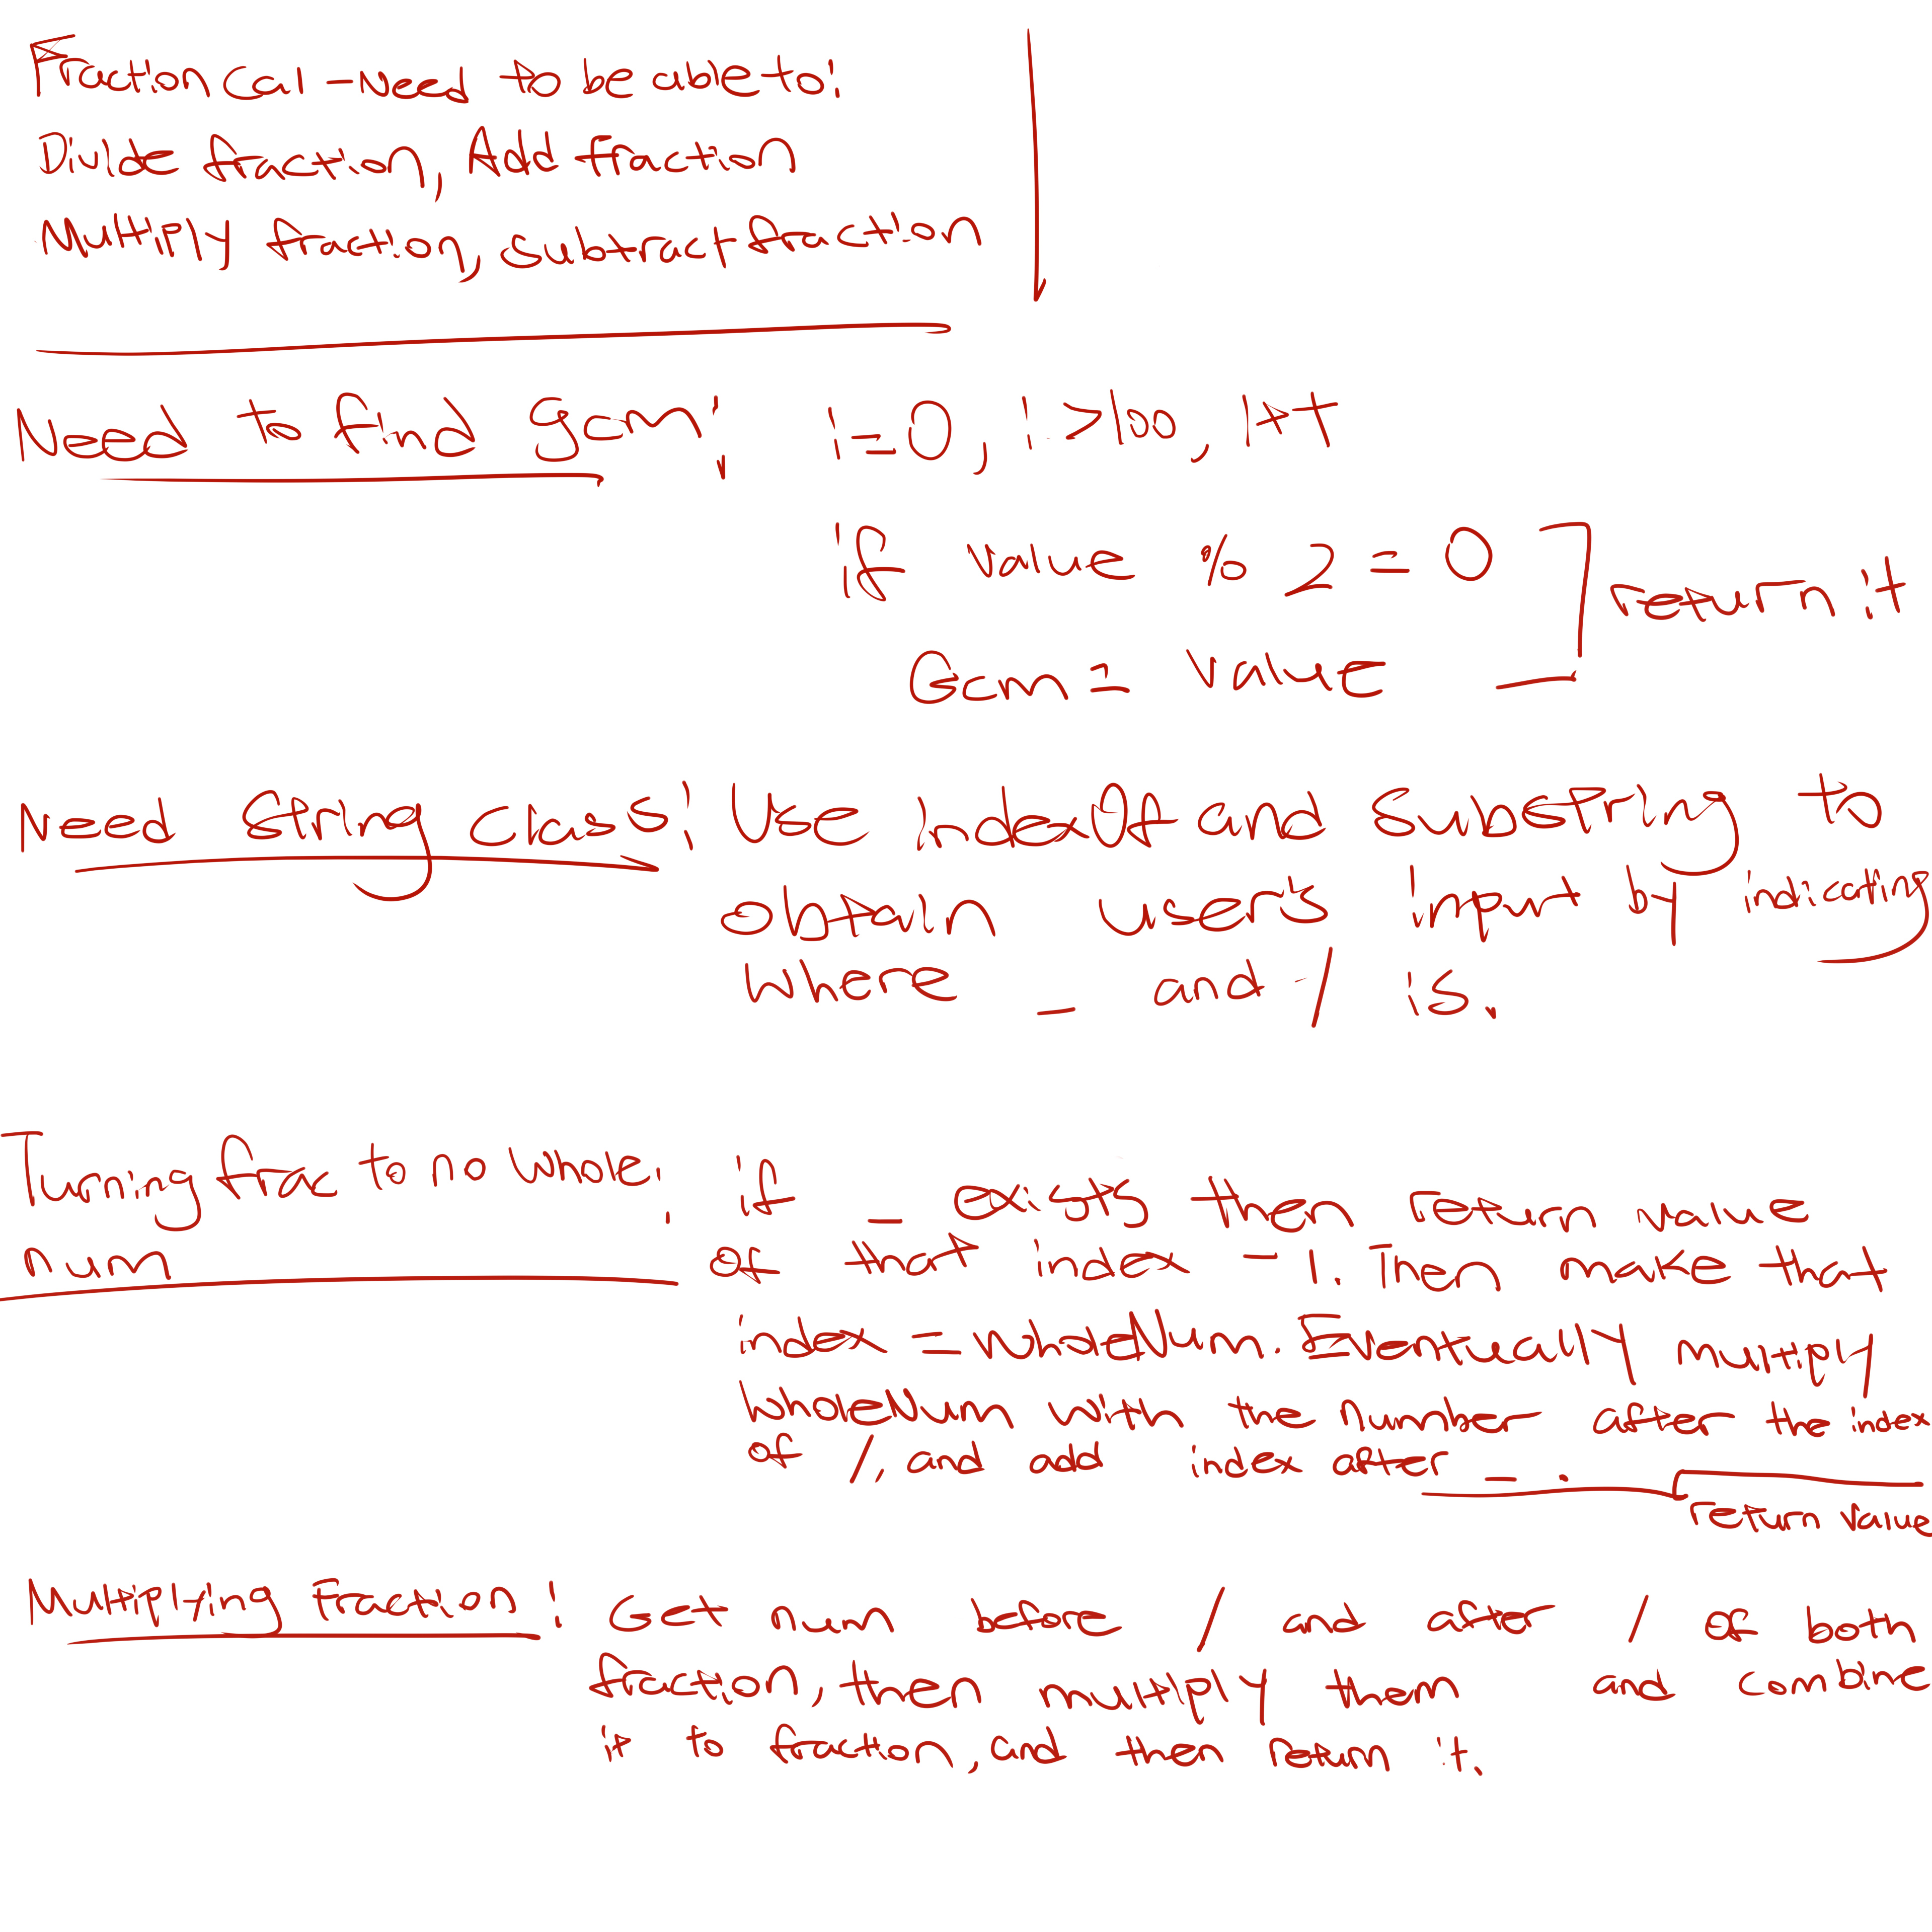 Fraction Cal - need to be able to:
Divide fraction, Add fraction
Multiply fraction, subtract fraction
Need to find gcm: i=0, i>100, i++
if value % 2 = 0
return it
Gcm = value
Need String class: Use indexOf and Substring to
obtain user's input by indicating
where _ and / is.
Turning frac to no whole: if _ exists then return value
num
of that index - 1. Then make that
index = wholeNum. Eventually multiply
wholeNum with the number after the index
of /. and add index after _.
return value
Multiplying Fraction: Get num before / and after / of both
fraction, then multiply them and combine
it to fraction, and then return it.